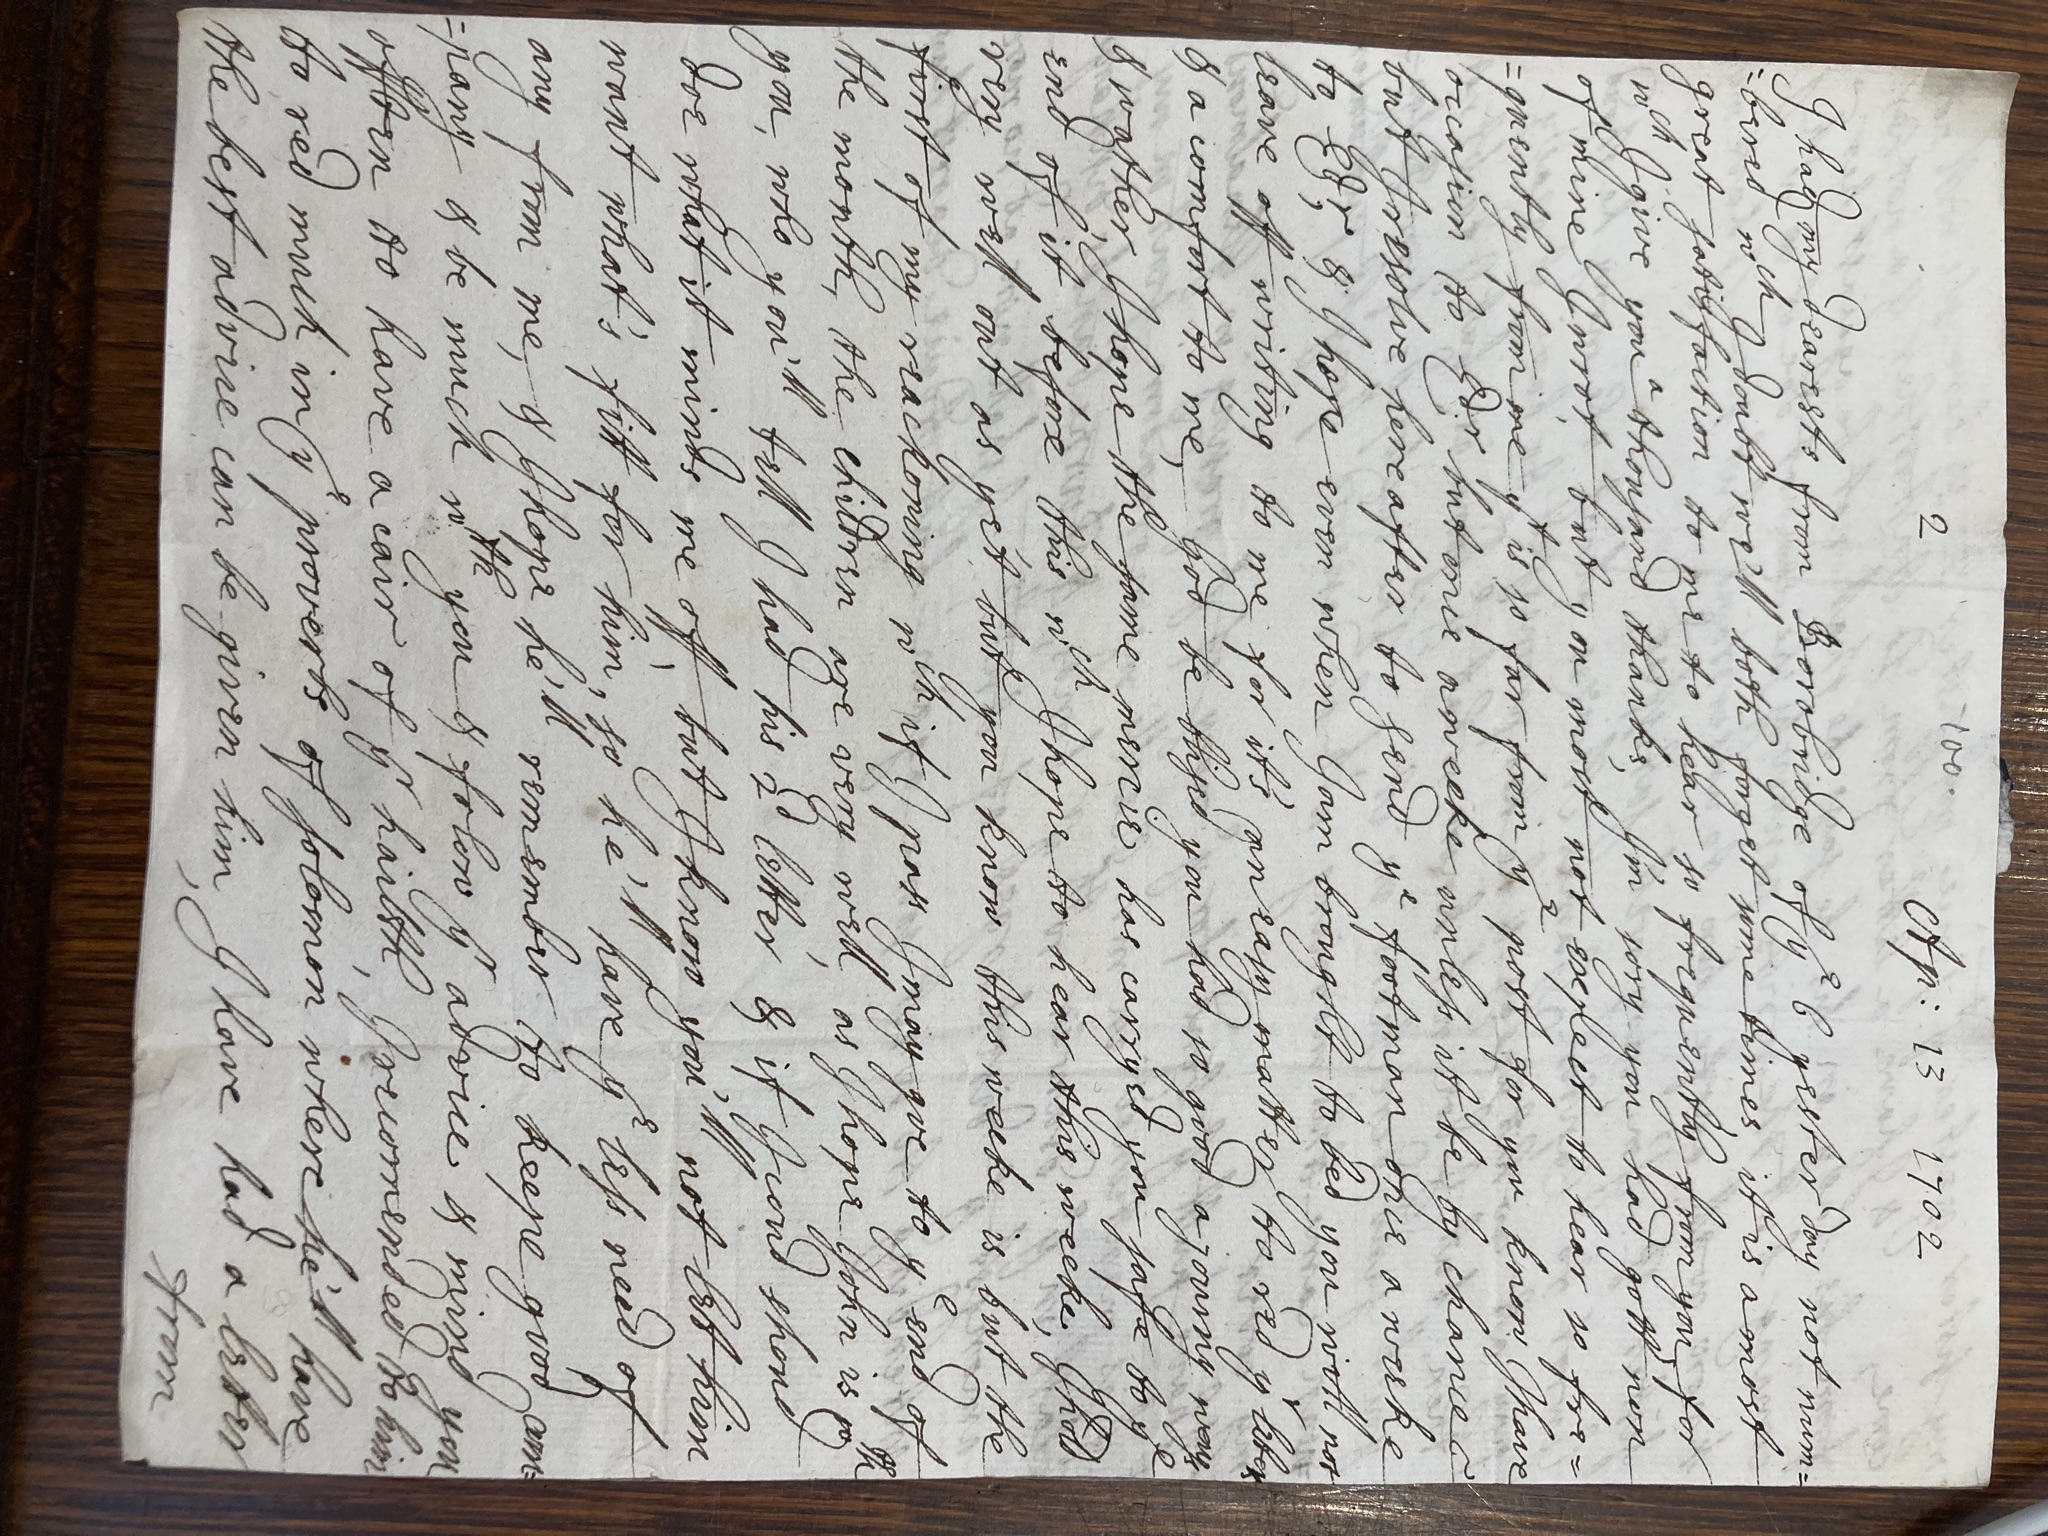 2 100. Ap: 13 1702
I had my dearests from Borobridge of ye 6 yesterday not num=
=bered wch I doubt we'll both forget some times, it is a most
great satisfaction to me to hear so frequently from you, for
wch I give you a thousand thanks, I'm sory you had gott non
of mine I wrot, but you most not expect to hear so fre=
=quently from me yt is so far from ye post for you know I have
occasion to Edr. but once a weeke unless it be by chance
but I resolve hereafter to send ye footman once a weeke
to Edr, & I hope even when I am brought to bed you will not
leave off writing to me for it's an easy matter to red yr leters
& a comfort to me, God be blised you had so good a journy ways
& wather, I hope the same mercie has carryed you safe to ye
end of it before this, wch I hope to hear this weeke, I hold
very well out as yet but you know this weeke is but the
first of my reackoning wch if I pass I may goe to ye end of
the month, the children are very well, as I hope John is wth
you, who you'll tell I had his 2d letter & if I coud shoud
doe what it minds me off, but I know you'll not let him
want what's fitt for him, so he'll have ye less need of
any from me, & I hope he'll remember to keepe good com=
=pany & be much wth you & folow yr advice & mind you
offten to have a cair of yr hailth, I recomended to him
to red much in ye proverbs of solomon where he'll have
the best advice can be given him, I have had a letter
from